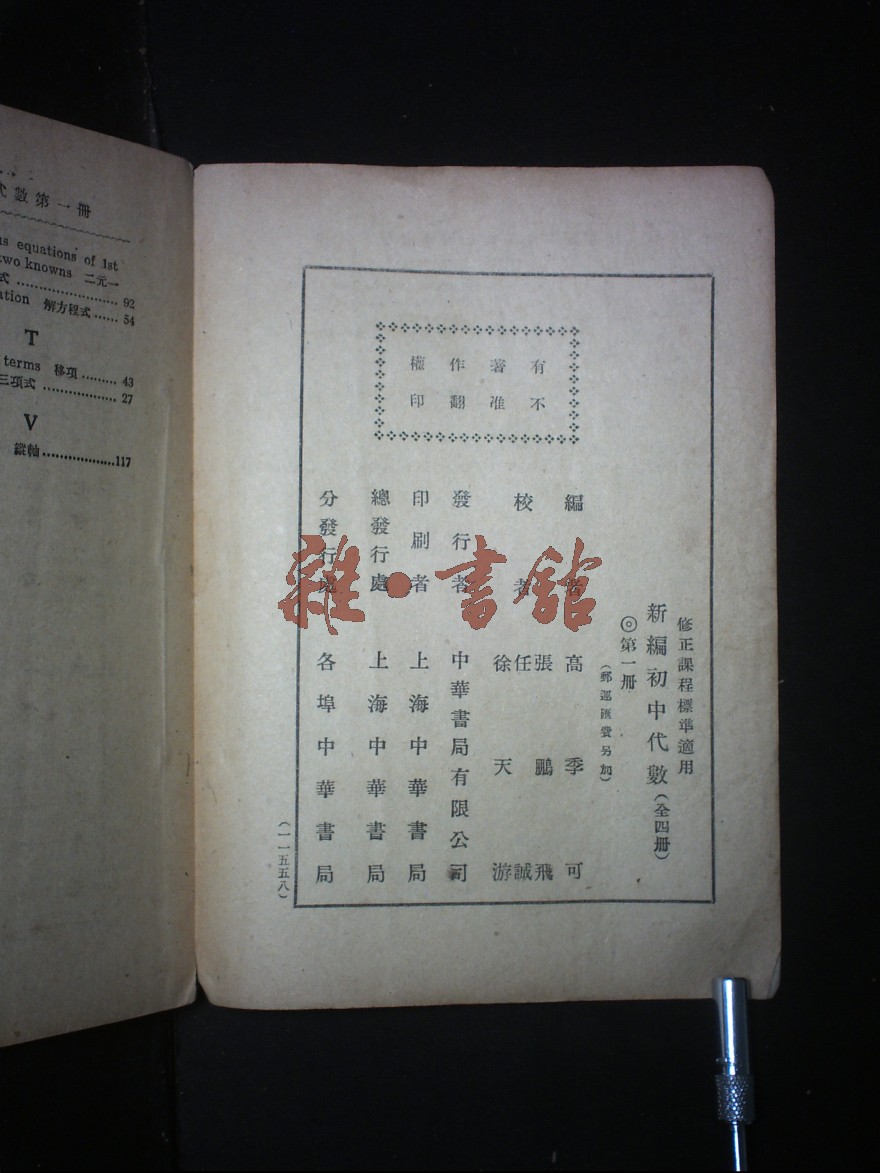 代數第一冊
us equations of 1st
two knowns 二元一
式 ...................... 92
ation 解方程式 ...... 54
T
terms 移項 ......... 43
三項式 .................. 27
V
縱軸 .................. 117
有著作權
不准翻印
修正課程標準適用
新編初中代數(全四冊)
◎第一冊
(郵運匯費另加)
編者 高季可
校者 張鵬飛
任誠
徐天游
發行者 中華書局有限公司
印刷者 上海中華書局
總發行處 上海中華書局
分發行處 各埠中華書局
(一一五五八)
雜·書館